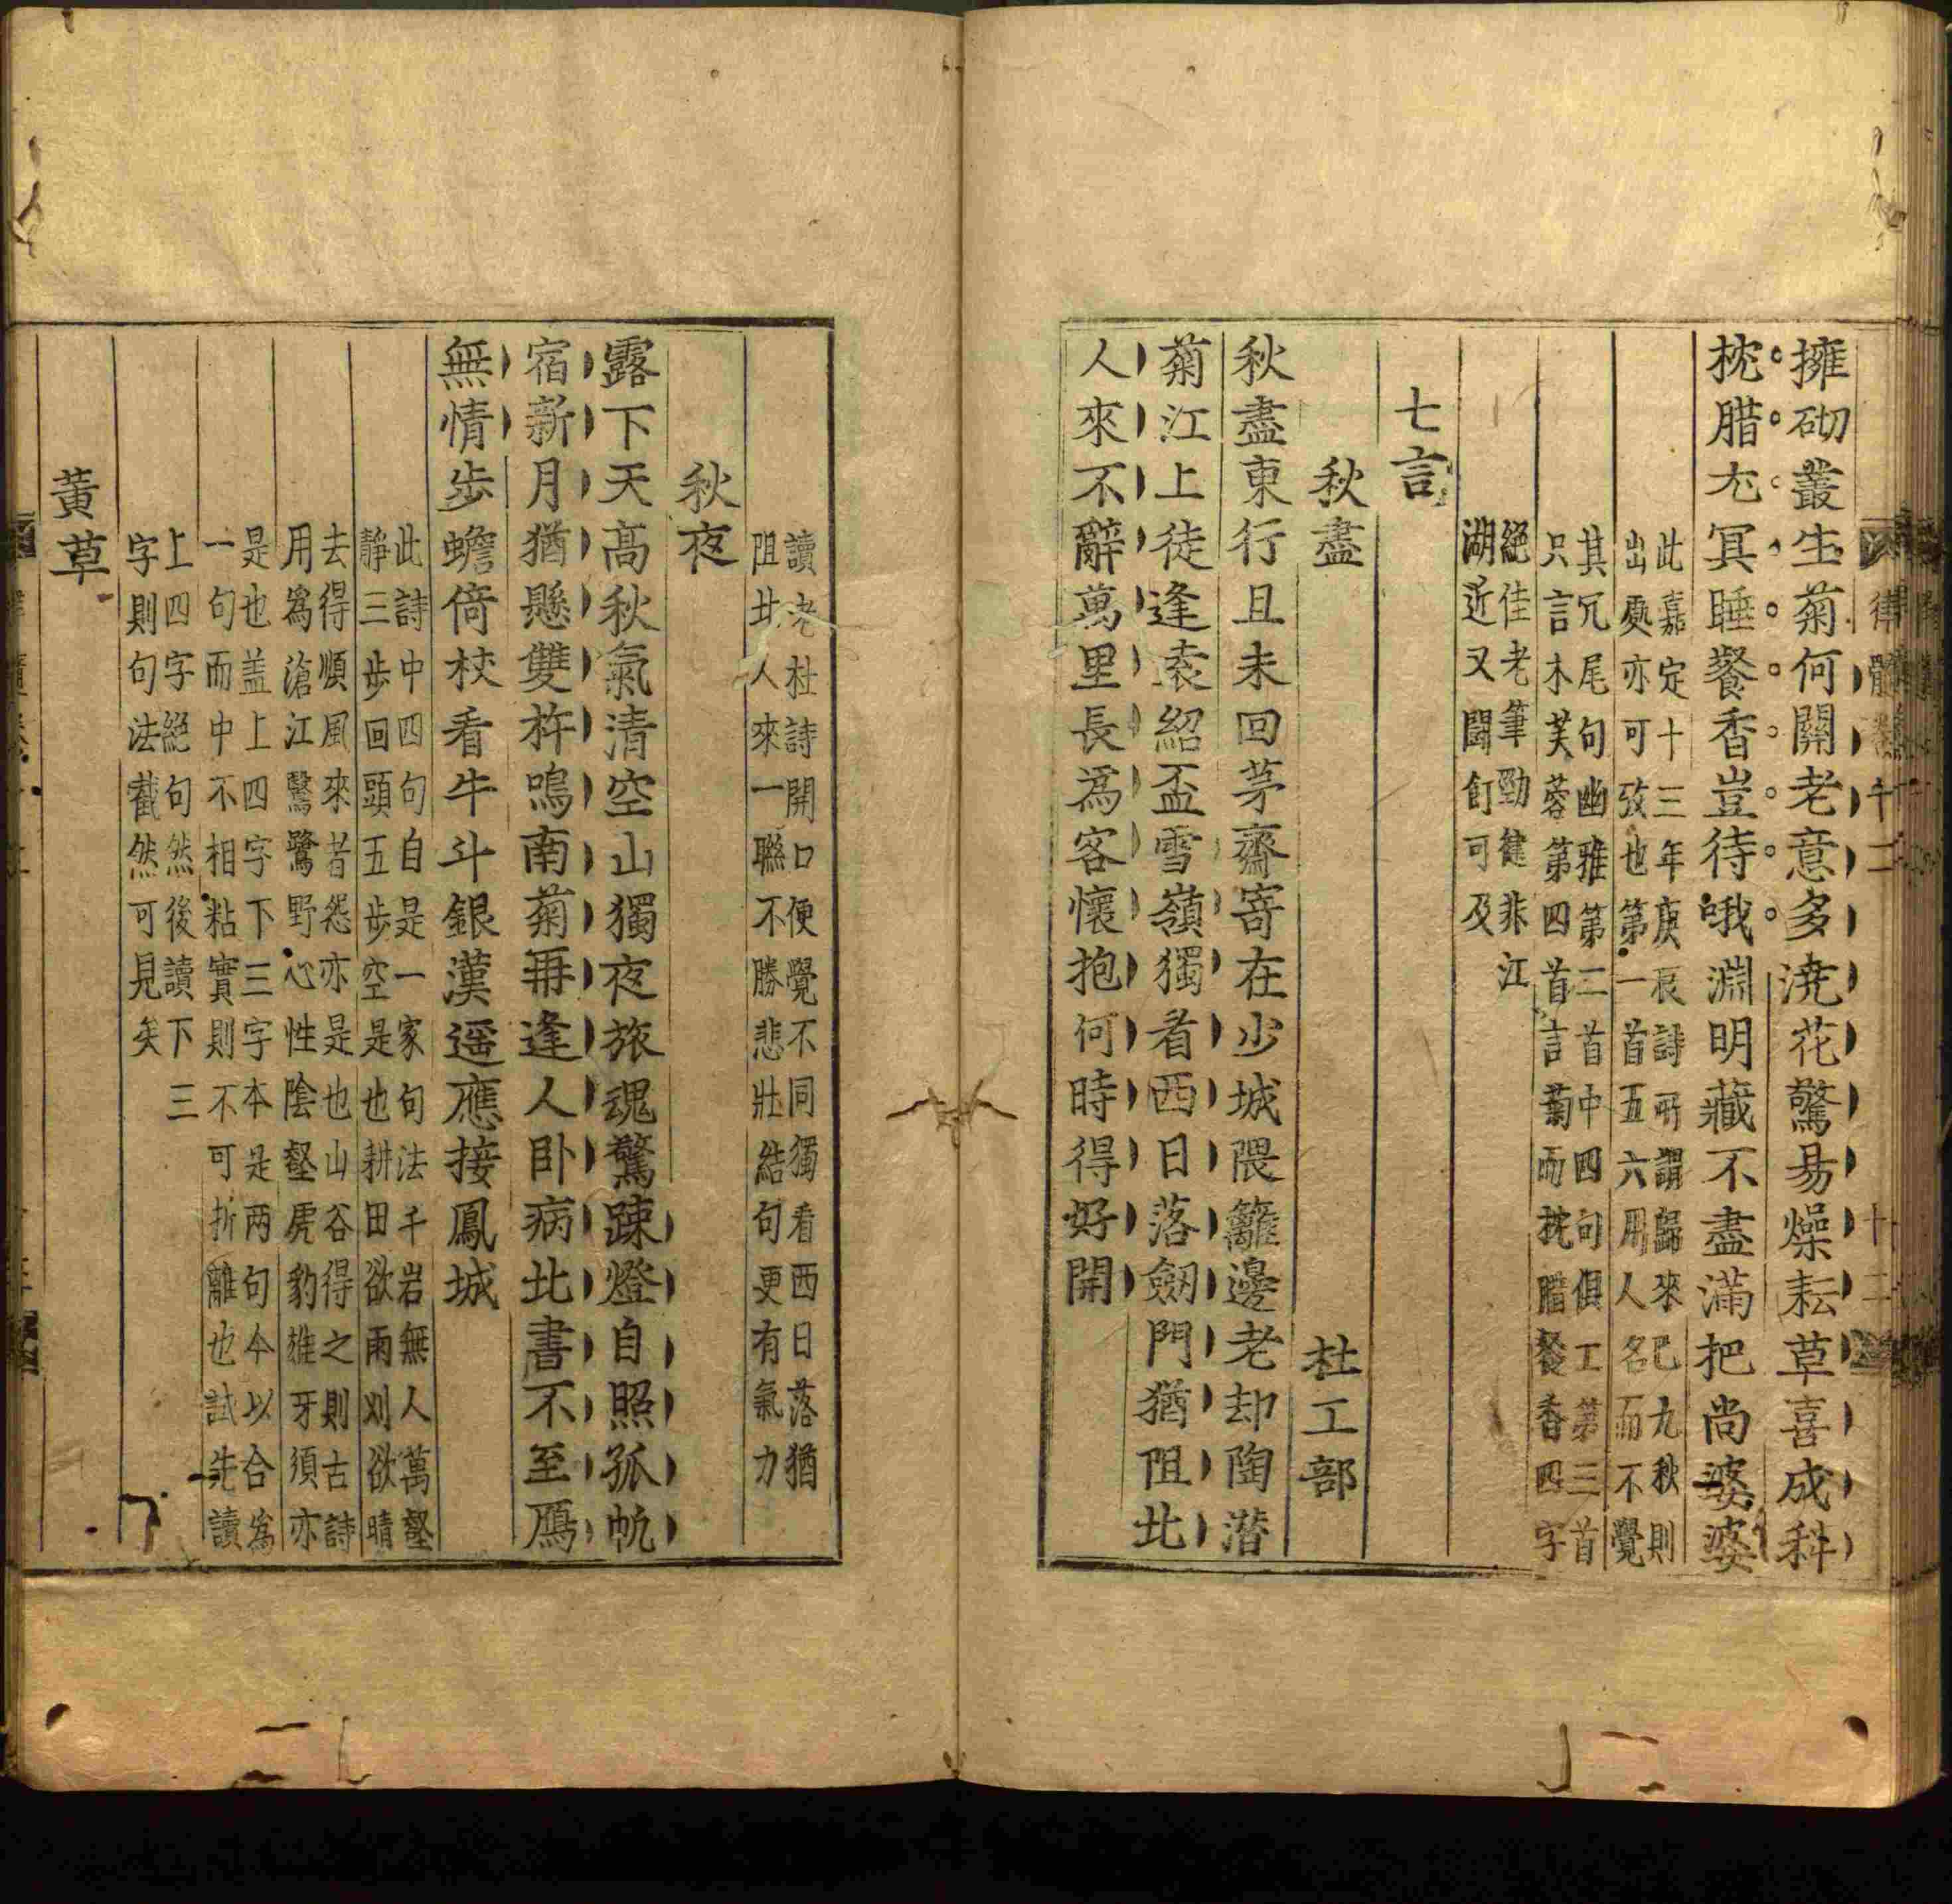 擁砌叢生菊何關老意多澆花驚易燥耘草喜成科
枕腊冘冥睡餐香豈待哦淵明藏不盡滿把尚婆婆
此嘉定十三年庚辰詩所謂歸來已九秋則
出處亦可攷也第一首五六用人名而不覺
其冗尾句幽雅第二首中四句俱工第三首
只言木芙蓉第四首言菊而枕腊餐香四字
絕佳老筆勁健非江
湖近又鬪飣可及
七言
秋盡 杜工部
秋盡東行且未回茅齋寄在少城隈籬邊老却陶潜
菊江上徒逢袁紹盃雪嶺獨看西日落劔門猶阻北
人來不辭萬里長爲客懷抱何時得好開
讀老杜詩開口便覺不同獨看西日落猶
阻北人來一聯不勝悲壯結句更有氣力
秋夜
露下天高秋氣清空山獨夜旅魂驚踈燈自照孤帆
宿新月猶懸雙杵鳴南菊再逢人卧病北書不至鴈
無情步蟾倚杖看牛斗銀漢遥應接鳳城
此詩中四句自是一家句法千岩無人萬壑
靜三步回頭五步空是也耕田欲雨刈欲晴
去得順風來者怨亦是也山谷得之則古詩
用爲滄江鷖鷺野心性陰壑虎豹雄牙須亦
是也盖上四字下三字本是两句今以合爲
一句而中不相粘實則不可折離也試先讀
上四字絕句然後讀下三
字則句法截然可見矣
黃草